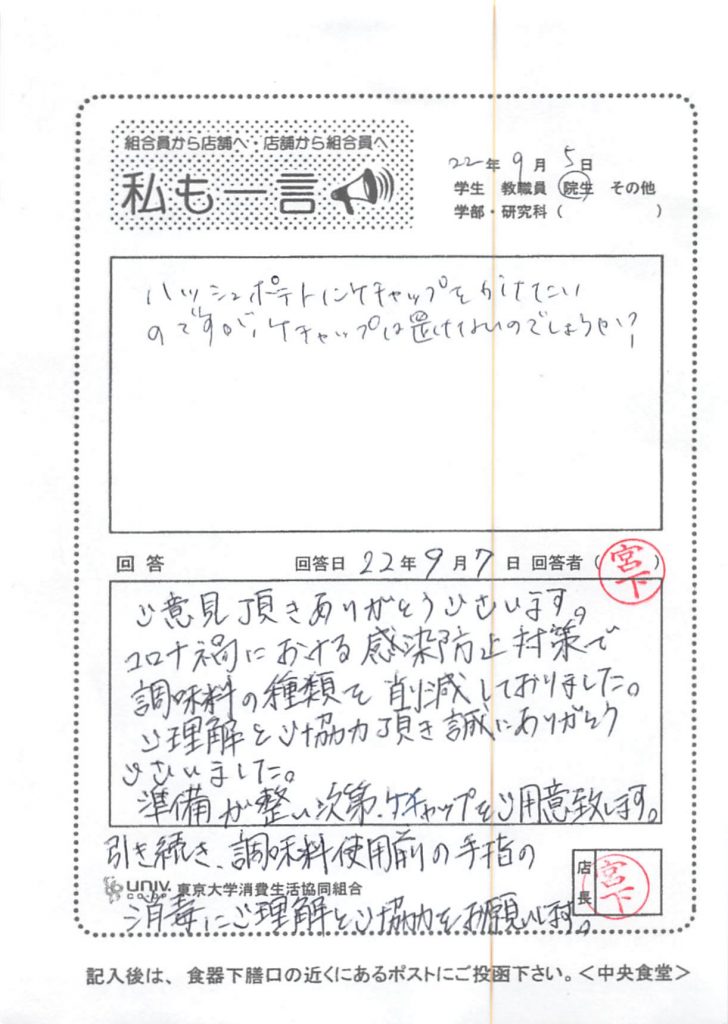 組合員から店舗へ・店舗から組合員へ
私も一言
22年9月5日
学生 教職員 院生 その他
学部・研究科( )
ハッシュポテトにケチャップをかけたい
のですが、ケチャップは置けないのでしょうか?
回答 回答日 22年9月7日 回答者(宮下)
ご意見頂きありがとうございます。
コロナ禍における感染防止対策で
調味料の種類を削減しておりました。
ご理解とご協力頂き誠にありがとう
ございました。
準備が整い次第、ケチャップをご用意致します。
引き続き、調味料使用前の手指の
店長 宮下
UNIV. CO-OP 東京大学消費生活協同組合
消毒にご理解とご協力をお願いします。
記入後は、食器下膳口の近くにあるポストにご投函下さい。<中央食堂>